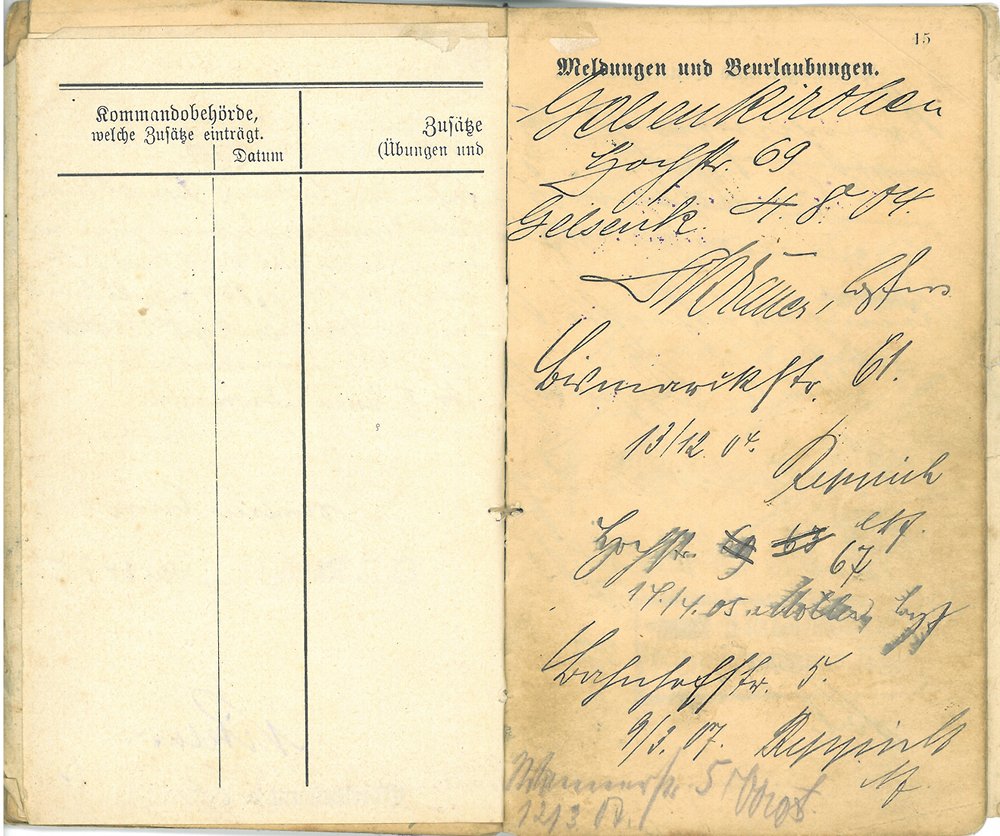 Kommandobehörde,
welche Zusätze einträgt.
Datum
Zusätze
(Übungen und
15
Meldungen und Beurlaubungen.
Gelsenkirchen
Hochstr. 69
Gelsenk. 4. 8. 04.
Bismarckstr. 61.
13/12 04.
Reppich
Hochstr. 69 68
67
14/4. 05.
Bahnhofstr. 5.
9/3. 07. Reppich
5